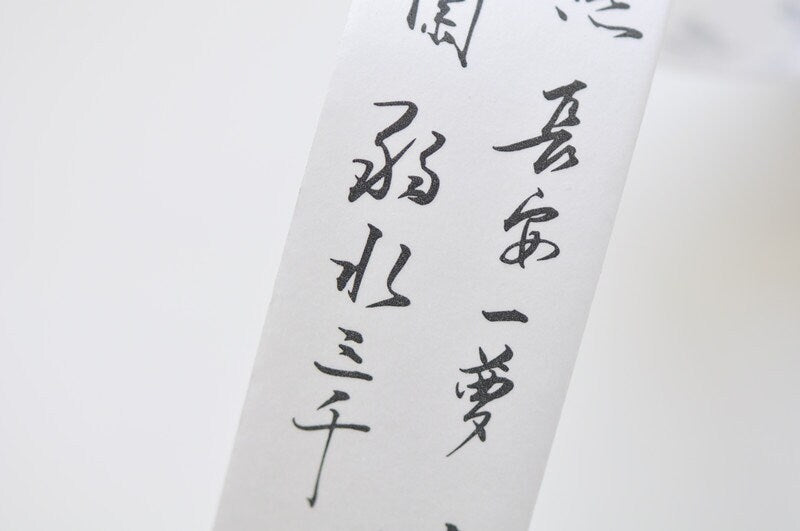 長安一夢
弱水三千